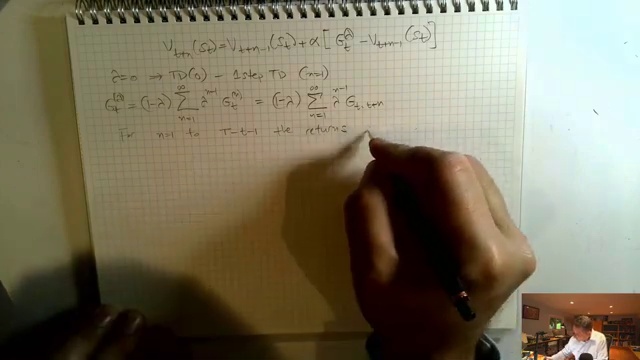 V_{t+n}(S_t) = V_{t+n-1}(S_t) + α [ G_t^{(λ)} - V_{t+n-1}(S_t) ]
λ=0 ⇒ TD(0) - 1 step TD (n=1)
G_t^{(λ)} = (1-λ) Σ_{n=1}^{∞} λ^{n-1} G_t^{(n)} = (1-λ) Σ_{n=1}^{∞} λ^{n-1} G_{t,t+n}
For n=1 to T-t-1 the returns